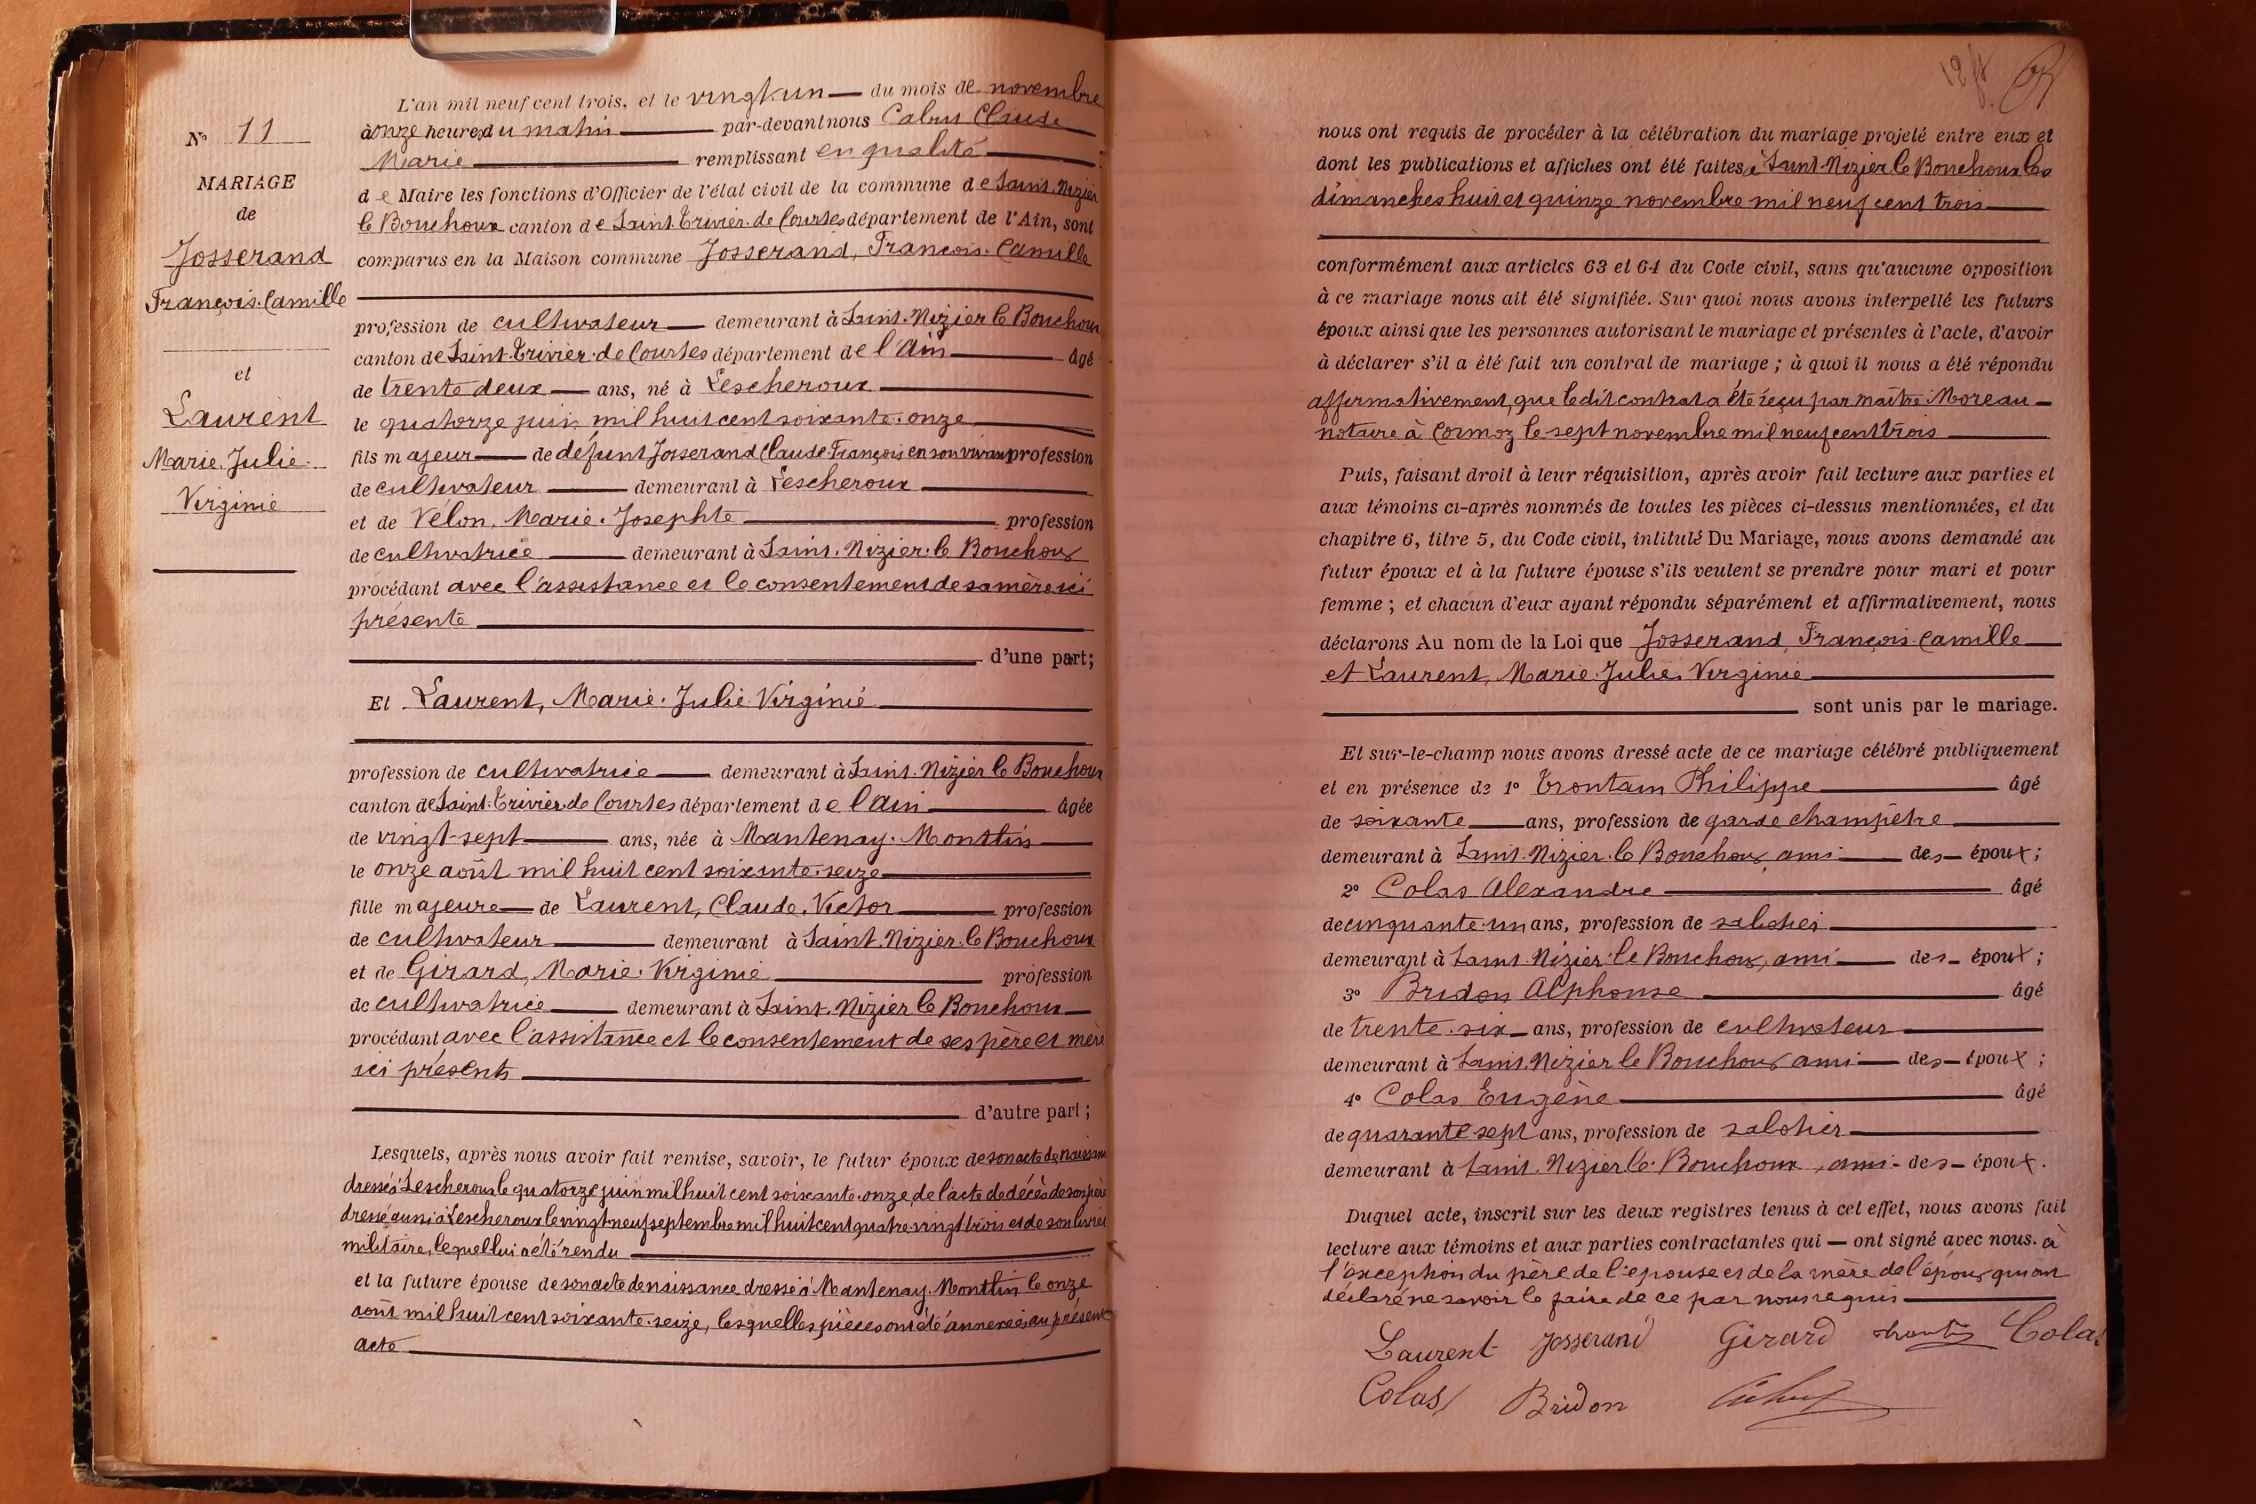 N° 11
MARIAGE
de
Josserand
François-Camille
et
Laurent
Marie-Julie-
Virginie
L'an mil neuf cent trois, et le vingt-un du mois de novembre
à onze heures du matin par-devant nous Claude
Marie remplissant en qualité
de Maire les fonctions d'Officier de l'état civil de la commune de Saint-Nizier
le Bouchoux canton de Saint-Trivier-de Courtes département de l'Ain, sont
comparus en la Maison commune Josserand, François-Camille
profession de cultivateur demeurant à Saint-Nizier le Bouchoux
canton de Saint-Trivier-de Courtes département de l'Ain âgé
de trente deux ans, né à Lescheroux
le quatorze juin mil huit cent soixante-onze
fils majeur de défunt Josserand Claude-François en son vivant profession
de cultivateur demeurant à Lescheroux
et de Vélon, Marie-Josephte profession
de cultivatrice demeurant à Saint-Nizier-le Bouchoux
procédant avec l'assistance et le consentement de sa mère ici
présente
d'une part;
Et Laurent, Marie-Julie Virginie
profession de cultivatrice demeurant à Saint-Nizier le Bouchoux
canton de Saint-Trivier de Courtes département de l'Ain âgée
de vingt-sept ans, née à Mantenay-Montlin
le onze août mil huit cent soixante-seize
fille majeure de Laurent, Claude-Victor profession
de cultivateur demeurant à Saint-Nizier-le Bouchoux
et de Girard, Marie-Virginie profession
de cultivatrice demeurant à Saint-Nizier le Bouchoux
procédant avec l'assistance et le consentement de ses père et mère
ici présents
d'autre part;
Lesquels, après nous avoir fait remise, savoir, le futur époux de son acte de naissance
dressé à Lescheroux le quatorze juin mil huit cent soixante-onze, de l'acte de décès de son père
dressé aussi à Lescheroux le vingt neuf septembre mil huit cent quatre vingt trois et de son livret
militaire, lequel lui a été rendu
et la future épouse de son acte de naissance dressé à Mantenay-Montlin le onze
août mil huit cent soixante-seize, lesquelles pièces ont été annexées au présent
acte
nous ont requis de procéder à la célébration du mariage projeté entre eux et
dont les publications et affiches ont été faites à Saint-Nizier le Bouchoux les
dimanches huit et quinze novembre mil neuf cent trois
conformément aux articles 63 et 64 du Code civil, sans qu'aucune opposition
à ce mariage nous ait été signifiée. Sur quoi nous avons interpellé les futurs
époux ainsi que les personnes autorisant le mariage et présentes à l'acte, d'avoir
à déclarer s'il a été fait un contrat de mariage ; à quoi il nous a été répondu
affirmativement, que ledit contrat a été reçu par maître Moreau
notaire à Cormoz le sept novembre mil neuf cent trois
Puis, faisant droit à leur réquisition, après avoir fait lecture aux parties et
aux témoins ci-après nommés de toutes les pièces ci-dessus mentionnées, et du
chapitre 6, titre 5, du Code civil, intitulé Du Mariage, nous avons demandé au
futur époux et à la future épouse s'ils veulent se prendre pour mari et pour
femme ; et chacun d'eux ayant répondu séparément et affirmativement, nous
déclarons Au nom de la Loi que Josserand, François-Camille
et Laurent, Marie-Julie Virginie
sont unis par le mariage.
Et sur-le-champ nous avons dressé acte de ce mariage célébré publiquement
et en présence de 1° Philippe âgé
de soixante ans, profession de garde champêtre
demeurant à Saint-Nizier-le Bouchoux, ami des époux;
2° Colas Alexandre âgé
de cinquante-un ans, profession de sabotier
demeurant à Saint-Nizier-le Bouchoux, ami des époux;
3° Bridon Alphonse âgé
de trente-six ans, profession de cultivateur
demeurant à Saint-Nizier le Bouchoux, ami des époux;
4° Colas Eugène âgé
de quarante-sept ans, profession de sabotier
demeurant à Saint-Nizier le-Bouchoux, ami des époux.
Duquel acte, inscrit sur les deux registres tenus à cet effet, nous avons fait
lecture aux témoins et aux parties contractantes qui ont signé avec nous. à
l'exception du père de l'épouse et de la mère de l'époux qui ont
déclaré ne savoir le faire de ce par nous requis
Laurent Josserand Girard Colas
Colas Bridon